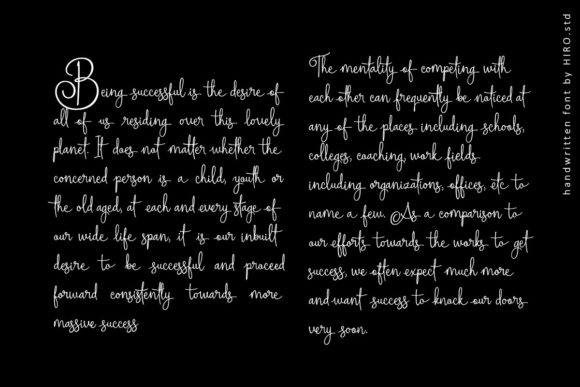 Being successful is the desire of
all of us residing over this lovely
planet. It does not matter whether the
concerned person is a child, youth or
the old aged, at each and every stage of
our wide life span, it is our inbuilt
desire to be successful and proceed
forward consistently towards more
massive success
The mentality of competing with
each other can frequently be noticed at
any of the places including schools,
colleges, coaching, work fields
including organizations, offices, etc to
name a few. As a comparison to
our efforts towards the works to get
success, we often expect much more
and want success to knock our doors
very soon.
handwritten font by HIRO.std